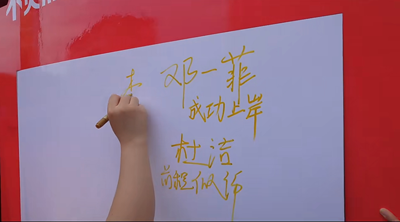 邓一菲
成功上岸
杜洁
前程似锦